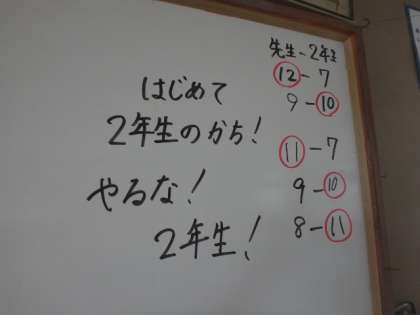 はじめて
2年生のかち!
やるな!
2年生!
先生-2年生
12-7
9-10
11-7
9-10
8-11